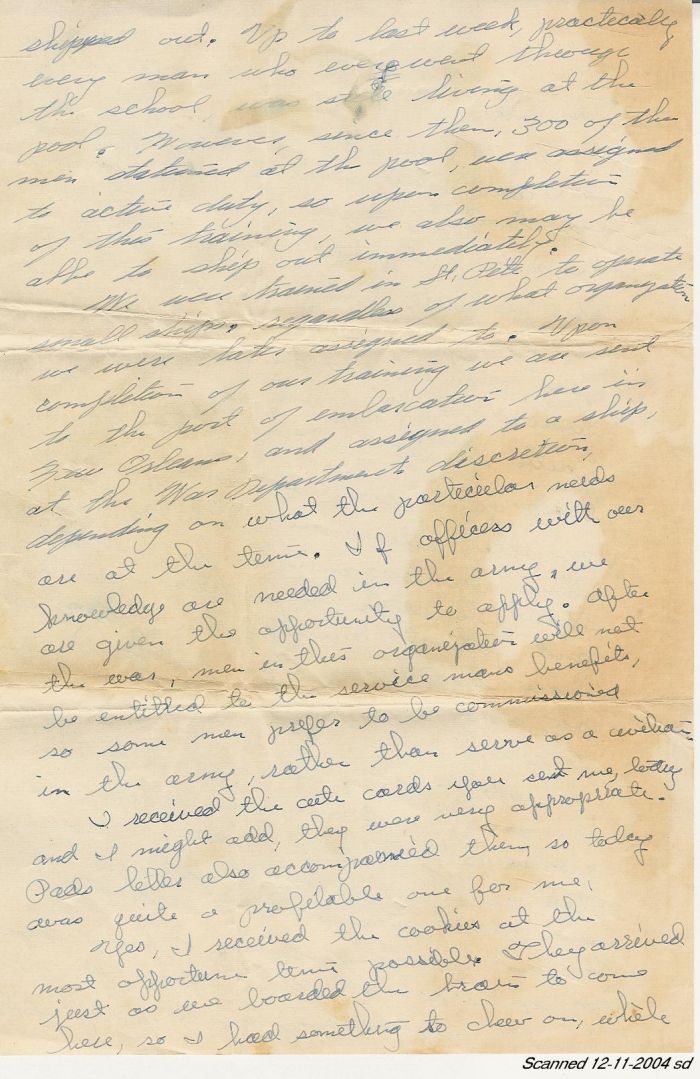 shipped out. Up to last week, practically
every man who ever went through
the school, was still living at the
pool. However, since then, 300 of the
men stationed at the pool, were assigned
to active duty, so upon completion
of this training, we also may be
able to ship out immediately.
We were trained in St. Pete to operate
small ships, regardless of what organization
we were later assigned to. Upon
completion of our training we are sent
to the port of embarcation here in
New Orleans, and assigned to a ship,
at the War Departments discretion,
depending on what the particular needs
are at the time. If officers with our
knowledge are needed in the army, we
are given the opportunity to apply. After
the war, men in this organization will not
be entitled to the service mans benefits,
so some men prefer to be commissioned
in the army, rather than serve as a civilian.
I received the cute cards you sent me, today
and I might add, they were very appropriate.
Pads letter also accompanied them, so today
was quite a profitable one for me.
Yes, I received the cookies at the
most opportune time possible. They arrived
just as we boarded the train to come
here, so I had something to chew on, while
Scanned 12-11-2004 sd